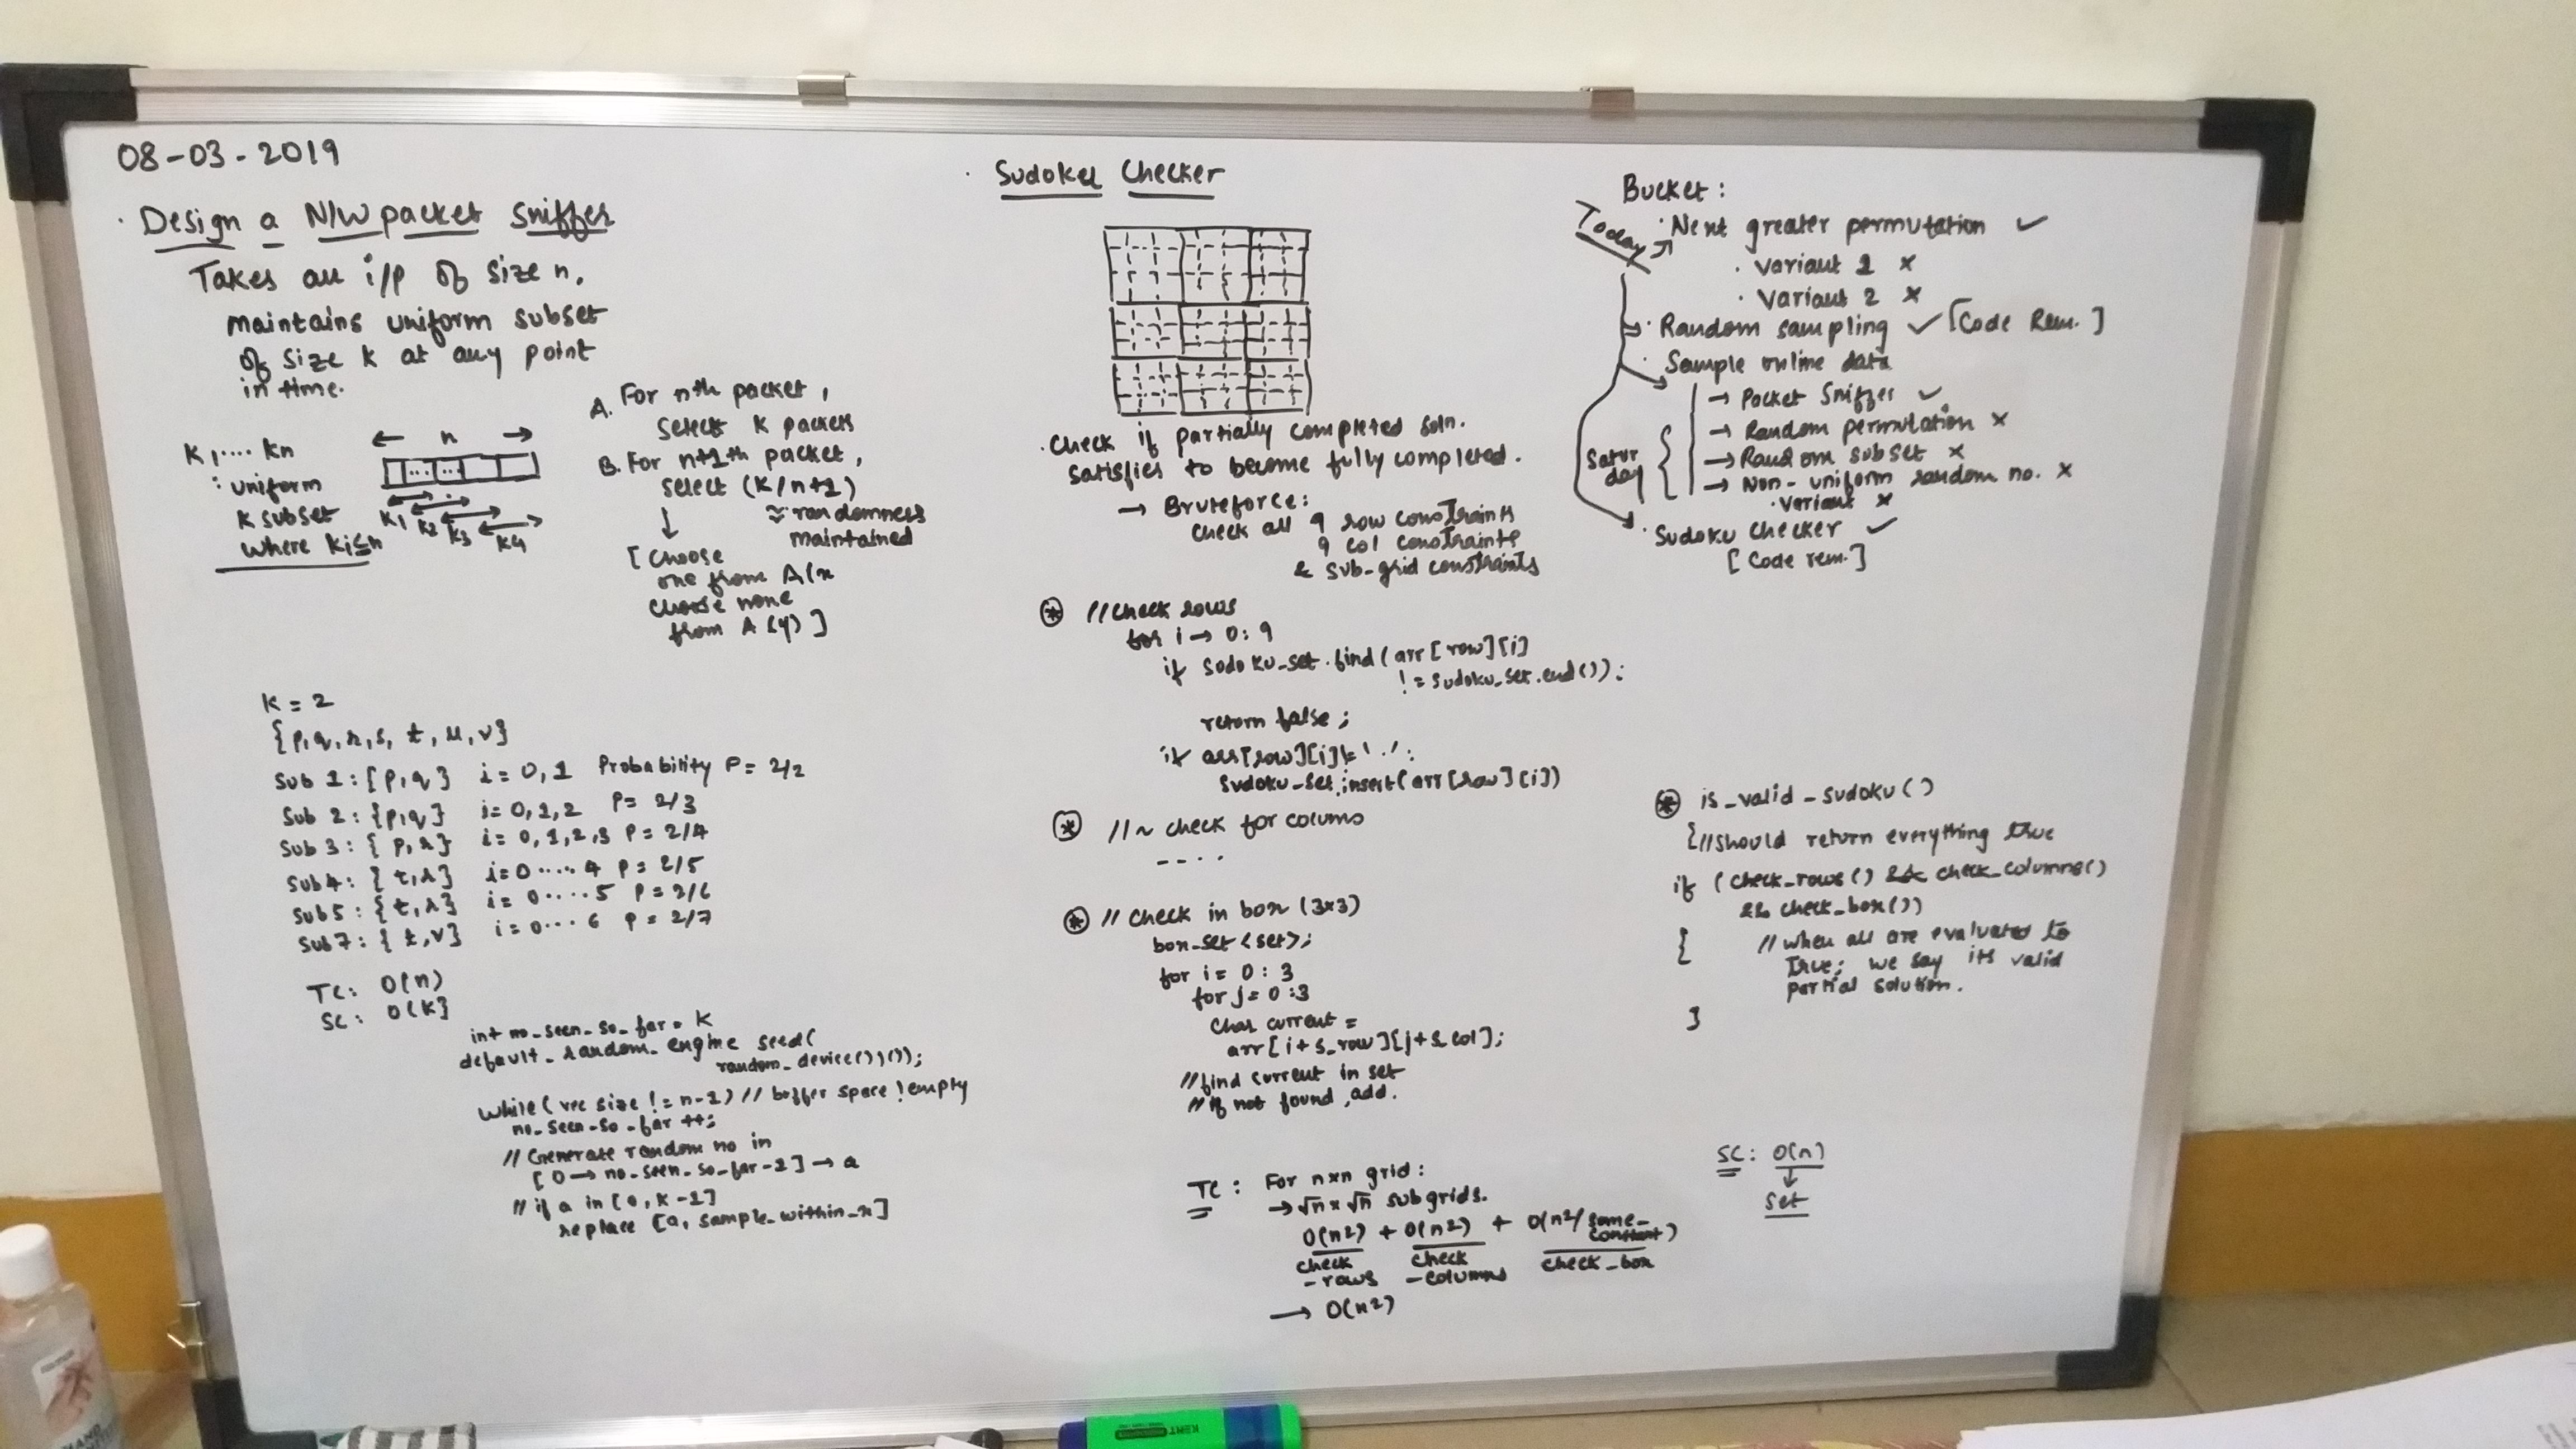 08-03-2019
· Design a N/W packet Sniffer
Takes an i/p of size n.
maintains uniform subset
of size k at any point
in time.
K1.... Kn
: uniform
K subset
where Ki≤n
← n →
... ...
K1 K2 K3 K4
A. For nth packet,
select K packets
B. For n+1th packet,
select (K/n+1)
≈ randomness
maintained
↓
[ Choose
one from A(x
choose none
from A (y) ]
K = 2
{p,q,r,s, t, u, v}
Sub 1 : { p,q } i = 0, 1 Probability P = 2/2
Sub 2 : {p,q} i= 0,1,2 P= 2/3
Sub 3 : { p, r } i= 0,1,2,3 P = 2/4
Sub 4 : { t, r } i=0.....4 P = 2/5
Sub 5 : { t, r } i= 0.....5 P = 2/6
Sub 7 : { t, v } i=0...6 P = 2/7
TC: O(n)
SC: O(K)
int no_seen_so_far = K
default_random_engine seed(
random_device())());
while ( vec size != n-1) // buffer space !empty
no_seen_so_far ++;
// Generate random no in
[ 0 → no_seen_so_far-1 ] → a
// if a in [0, K-1]
replace [a, sample_within_x]
· Sudoku Checker
· Check if partially completed soln.
satisfies to become fully completed.
→ Bruteforce:
check all 9 row constraints
9 col constraints
& sub-grid constraints
* // check rows
for i → 0: 9
if sodoku_set.find(arr[row][i]
!= sudoku_set.end()):
return false;
if arr[row][i]!='.':
sudoku_set.insert(arr[row][i])
* // ~ check for colums
----
* // check in box (3x3)
box_set <set>;
for i = 0 : 3
for j = 0 :3
char current =
arr[i+s_row][j+s_col];
//find current in set
// if not found, add.
TC : For nxn grid:
→ √n x √n subgrids.
O(n2) + O(n2) + O(n2/some_
constant)
check
-rows
check
-columns
check_box
→ O(n2)
Bucket :
Today
· Next greater permutation ✓
· Variant 1 ×
· Variant 2 ×
· Random sampling ✓ [Code Rem.]
· Sample online data
→ Packet Sniffer ✓
→ Random permutation ×
→ Random subset ×
→ Non-uniform random no. ×
· Variant ×
Satur
day
· Sudoku Checker ✓
[ Code rem.]
* is_valid_sudoku()
{//should return everything true
if ( check_rows() && check_columns()
&& check_box())
{ // when all are evaluated to
True; we say its valid
partial solution.
}
SC : O(n)
↓
Set
KENT
HAND